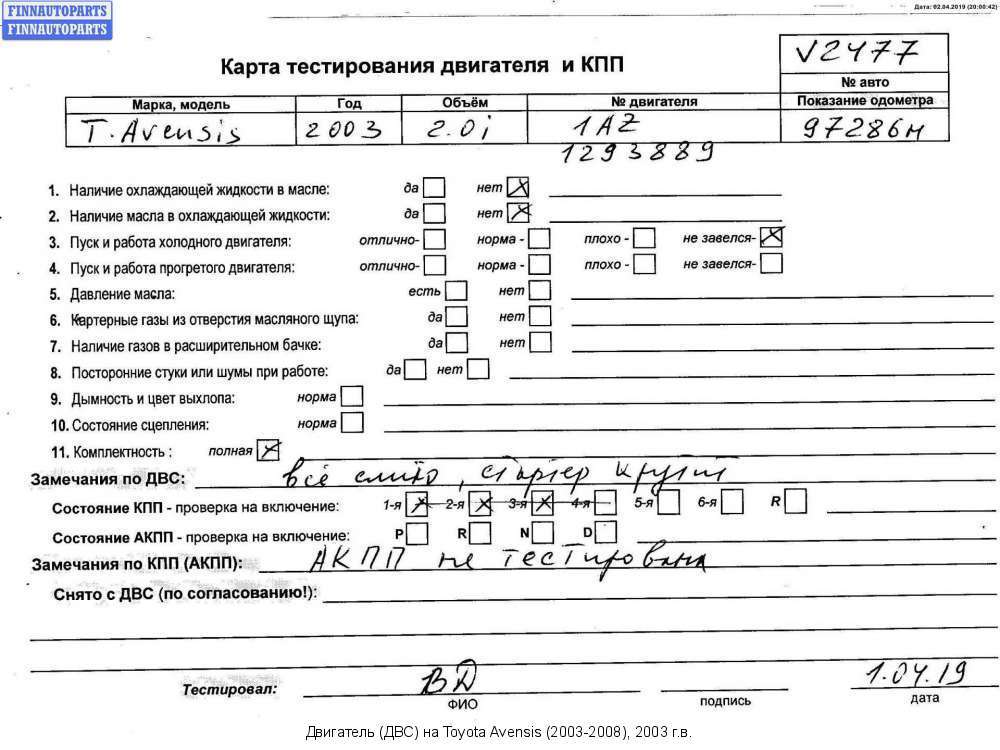 FINNAUTOPARTS
FINNAUTOPARTS
Дата: 02.04.2019 (20:00:42)
Карта тестирования двигателя и КПП
V2477
№ авто
Марка, модель Год Объём № двигателя Показание одометра
T. Avensis 2003 2.0i 1AZ 97286м
1293889
1. Наличие охлаждающей жидкости в масле: да нет
2. Наличие масла в охлаждающей жидкости: да нет
3. Пуск и работа холодного двигателя: отлично- норма - плохо - не завелся-
4. Пуск и работа прогретого двигателя: отлично- норма - плохо - не завелся-
5. Давление масла: есть нет
6. Картерные газы из отверстия масляного щупа: да нет
7. Наличие газов в расширительном бачке: да нет
8. Посторонние стуки или шумы при работе: да нет
9. Дымность и цвет выхлопа: норма
10. Состояние сцепления: норма
11. Комплектность : полная
Замечания по ДВС: всё слито, стартер крутит
Состояние КПП - проверка на включение: 1-я 2-я 3-я 4-я 5-я 6-я R
Состояние АКПП - проверка на включение: P R N D
Замечания по КПП (АКПП): АКПП не тестирована
Снято с ДВС (по согласованию!):
Тестировал: ВД 1.04.19
ФИО подпись дата
Двигатель (ДВС) на Toyota Avensis (2003-2008), 2003 г.в.